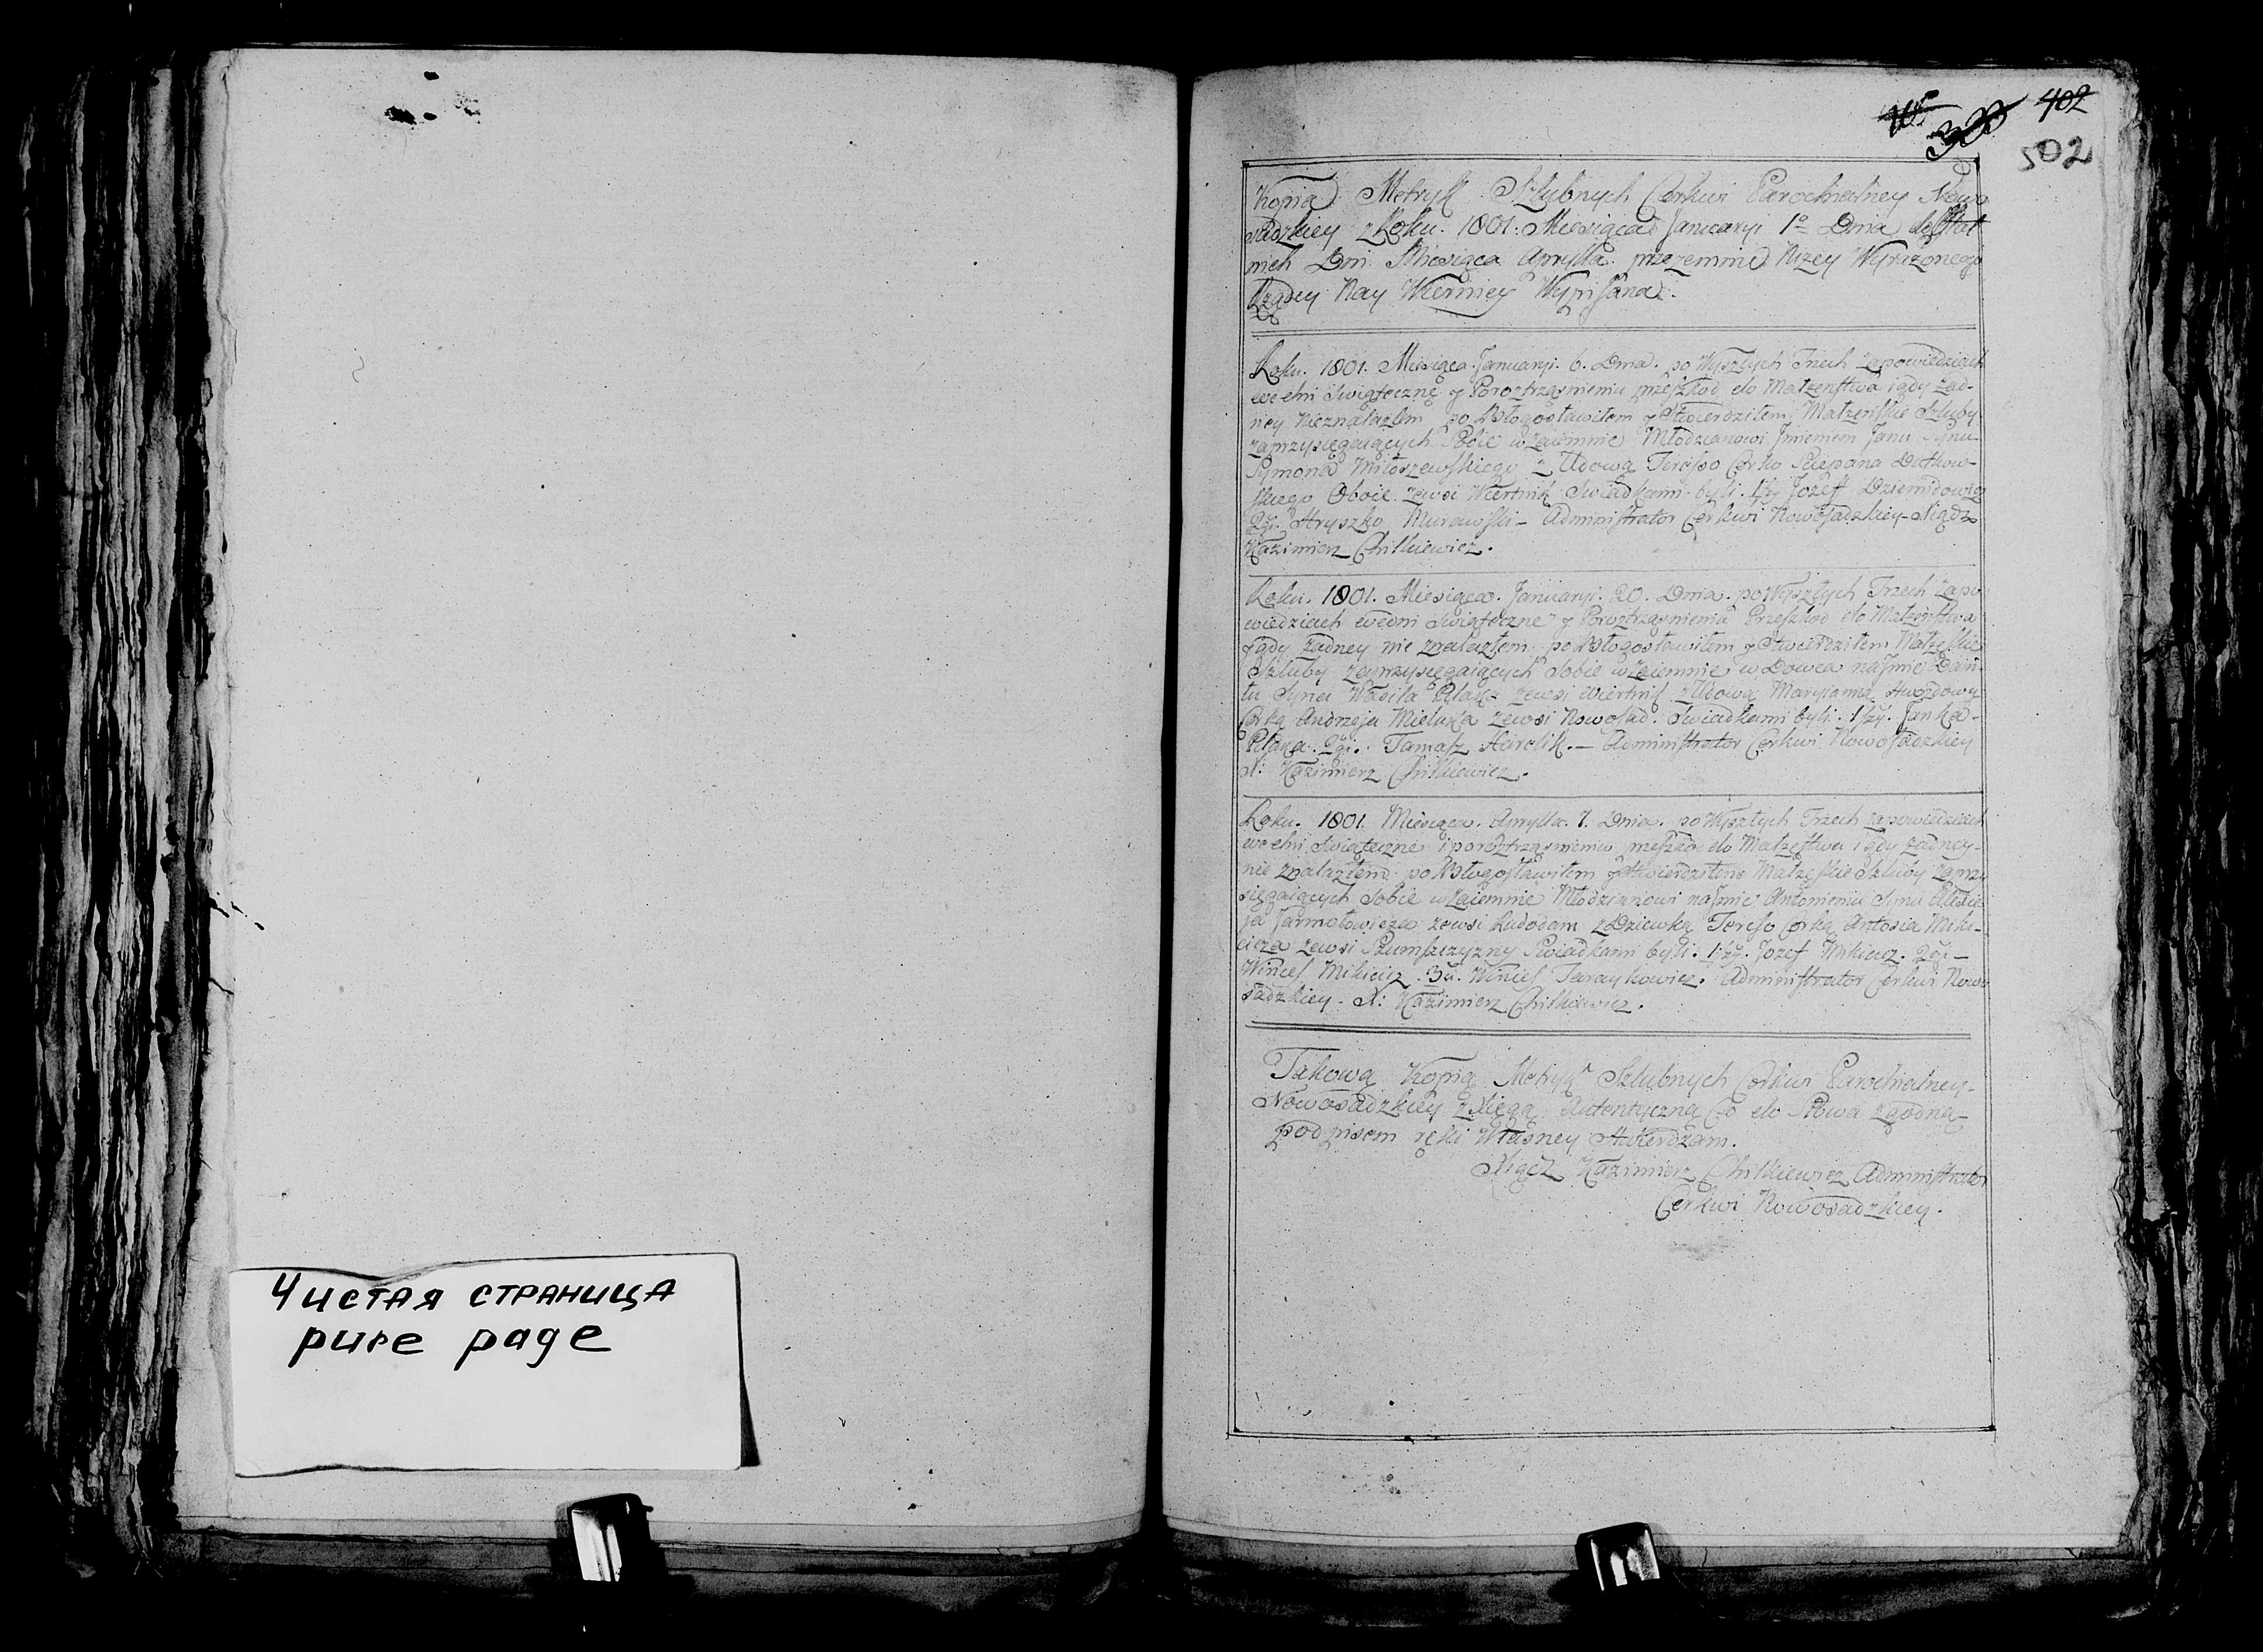 Чистая страница
pure page
402
502
Kopia Metryk Szlubnych Cerkwi Parochialney Nowo
sadzkiey z Roku. 1801. Miesiąca Januaryi 1º Dnia do Ostat
nich Dni Miesiąca Apryla. przezemnie Niżey Wyrażonego
Rządcy Nay Wierniey Wypisana.
Roku. 1801. Miesiąca Januaryi. 6. Dnia. po Wyszłych Trzech Zapowiedziach
we dni Swiąteczne y Poroztrząsnieniu przeszkod do Małzenstwa i gdy żad-
ney nieznalazłem po Błogosławiłem y Stwierdziłem Małzeńskie Szluby
zaprzysięgaiących Sobie wzaiemnie Młodzianowi Jmieniem Janu Synu
Symona Miłoszewskiego z Udową Teresso Corko Sciepana Dutkow-
skiego Oboie zewsi Wiertnik Swiadkami byli. 1szy Jozeff Dziemidowicz
2gi. Hryszko Murawski - Administrator Cerkwi Nowosadzkiey - Xiądz
Kazimierz Chilkiewicz.
Roku. 1801. Miesiąca. Januaryi. 20. Dnia. po Wyszłych Trzech Zapo
wiedziach wedni Swiąteczne y Poroztrząsnienia Przeszkod do Małzenstwa
y gdy żadney nie znalazłem po Błogosławiłem y Stwierdziłem Małzeskie
Szluby zaprzysięgaiących Sobie wzaiemnie wDowca naJmie Dani
łu Syna Wasila zewsi Wiertnik z Udową Maryianną
Corką Andrzeja zewsi Nowosad. Swiadkami byli. 1szy. Janka -
2gi. Tamasz Harelik. - Administrator Cerkwi Nowosadzkiey
X: Kazimierz Chilkiewicz.
Roku. 1801. Miesiąca. Apryla. 7. Dnia. po Wyszłych Trzech zapowiedziach
we dni Swiąteczne i poroztrząsnieniu przeszkod do Małzestwa i gdy żadney -
nie znalazłem po Błogosławiłem y Stwierdziłem Małzeskie Szluby zaprzy
sięgaiących Sobie wzaiemnie Młodzianowi naJmie Antoniemu Synu
ja Jarmołowicza zewsi z Dziewką Teresso Corką Antosia Miki-
cicza zewsi Szumszczyzny Swiadkami byli. 1szy. Jozef Mikicicz. 2gi -
Wincel Mikicicz. 3ci. Wincel Taraykowicz. Administrator Cerkwi Nowo
sadzkiey - X: Kazimierz Chilkiewicz.
Takową Kopią Metryk Szlubnych Cerkwi Parochialney -
Nowosadzkiey z Xięgą Autentyczną Co do Słowa zgodną -
podpisem ręki Własney stwierdzam.
Xiądz Kazimierz Chilkiewicz Administrator
Cerkwi Nowosadzkiey.